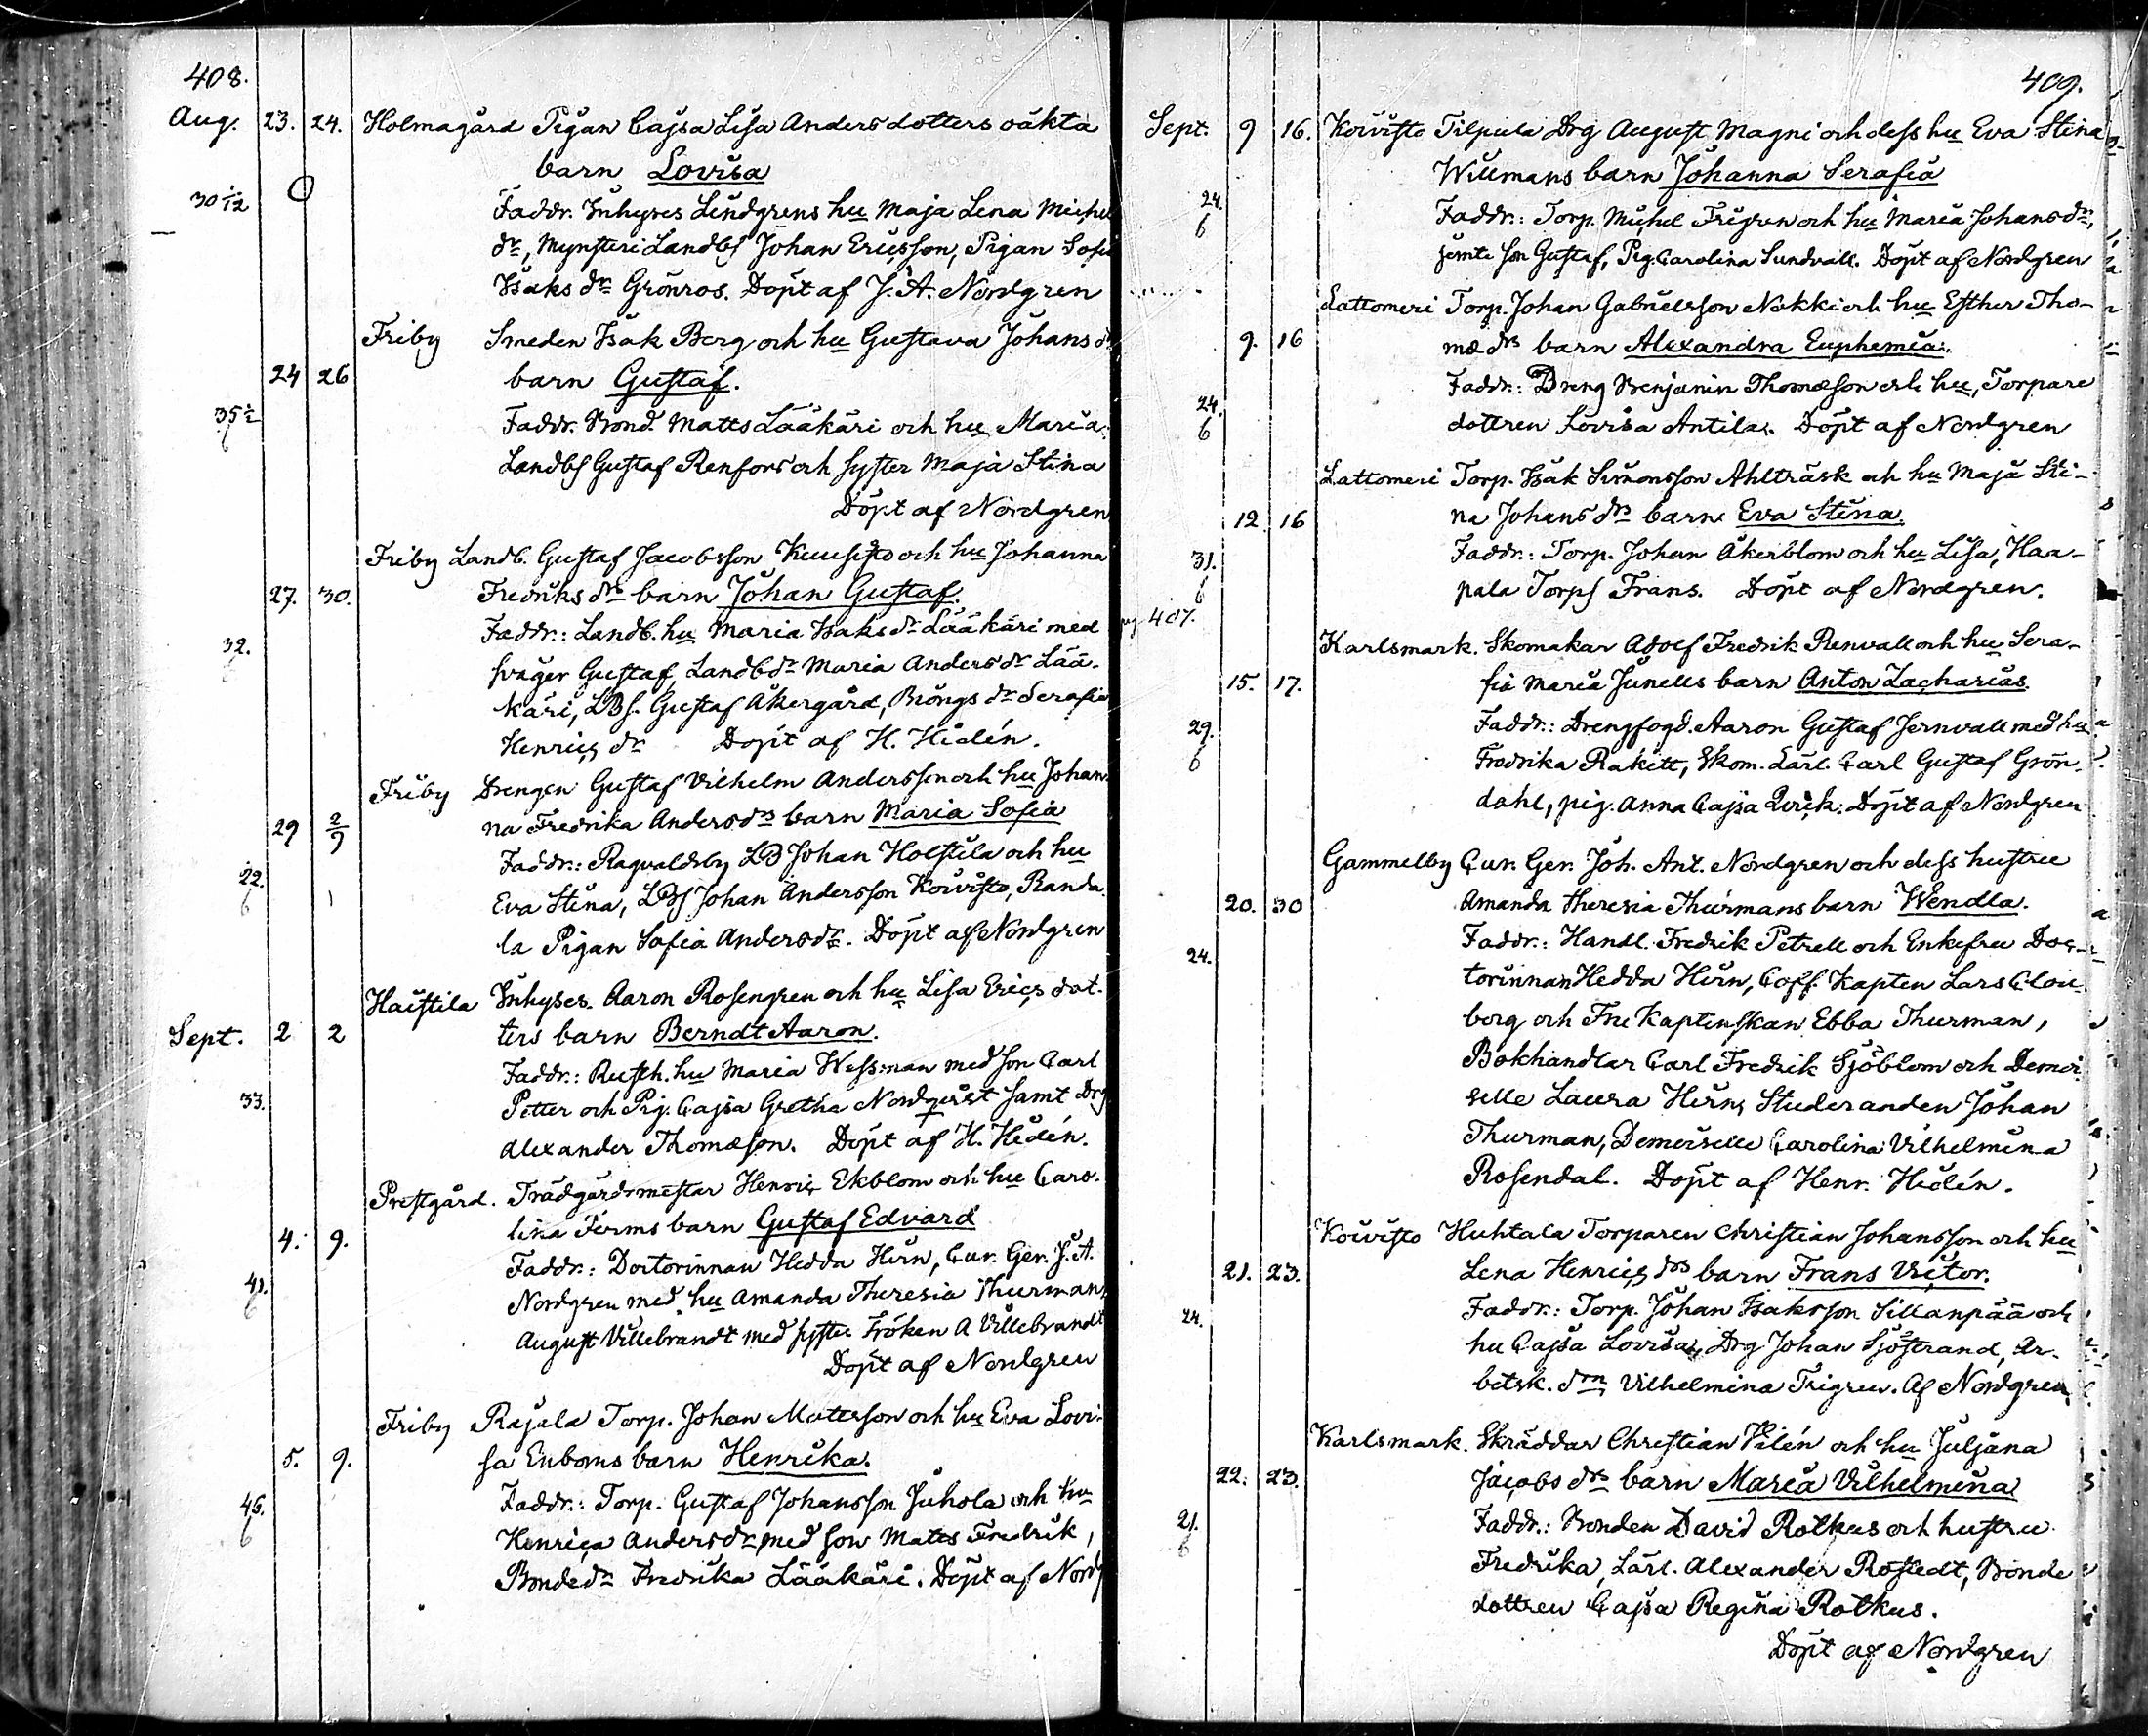 408.
Aug. 23. 24. Holmagård Pigan Cajsa Lisa Andersdotters oäkta
barn Lovisa
30 1/12
Faddr. Inhyses Lindgrens hu Maja Lena Michels
dr, Mynsteri Landbs Johan Ericsson, Pigan Sofia
Isaks dr Grönros. Döpt af J. A. Nordgren
Friby Smeden Isak Berg och hu Gustava Johans dr
24 26 barn Gustaf.
35 1/2
Faddr. Bond. Matts Lääkäri och hu Maria
Landbs Gustaf Renfors och syster Maja Stina
Döpt af Nordgren
Friby Landb. Gustaf Jacobsson Kuusisto och hu Johanna
27. 30. Fredriks drs barn Johan Gustaf.
32. Faddr.: Landb. hu Maria Isaks dr Lääkäri med
svåger Gustaf, Landb dr Maria Anders dr Lää-
käri, LBs. Gustaf Åkergård, Bröngs dr Serafia
Henrics dr Döpt af H. Hidén.
Friby Drengen Gustaf Vilhelm Andersson och hu Johan-
29 2/9 na Fredrika Andersdrs barn Maria Sofia
22.
6
Faddr.: Ragvaldsby LB Johan Holstila och hu
Eva Stina, LBs Johan Andersson Koivisto, Randa-
la Pigan Sofia Andersdr. Döpt af Nordgren
Haistila Inhyses. Aaron Rosengren och hu Lisa Erics dot-
Sept. 2 2 ters barn Berndt Aaron.
33. Faddr.: Rusth. hu Maria Wessman med son Carl
Petter och Pig. Cajsa Gretha Nordqvist samt Drg
Alexander Thomæson. Döpt af H. Hidén.
Prestgård. Trädgårdsmestar Henric Ekblom och hu Caro-
4. 9. lina Forms barn Gustaf Edvard
41.
Faddr.: Doctorinnan Hedda Hirn, Cur. Ger. J. A.
Nordgren med hu Amanda Theresia Thurman,
August Villebrandt med syster Fröken A Villebrandt
Döpt af Nordgren
Friby Rajala Torp. Johan Matsson och hu Eva Lovi-
5. 9. sa Enboms barn Henrika.
45.
6
Faddr.: Torp. Gustaf Johansson Juhola och hu
Henrica Andersdr med son Matts Fredrik,
Bonde dr Fredrika Lääkäri. Döpt af Nordg
409.
Sept. 9 16. Koivisto Tilpula Drg August Magni och dess hu Eva Stina
Willmans barn Johanna Serafia
24.
6
Faddr.: Torp. Michel Frigren och hu Maria Johansdr,
jemte son Gustaf, Pig. Carolina Sundvall. Döpt af Nordgren
Lattomeri Torp. Johan Gabrielsson Nokki och hu Esther Tho-
9. 16 mæ drs barn Alexandra Euphemia.
24.
6
Faddr.: Dreng Benjamin Thomæson och hu, Torpare
dottren Lovisa Antila. Döpt af Nordgren
Lattomeri Torp. Isak Simonsson Ahlträsk och hu Maja Sti-
12 16 na Johans drs barn Eva Stina.
31.
6
Faddr.: Torp. Johan Åkerblom och hu Lisa, Haa-
pala Torps Frans. Döpt af Nordgren.
pag 407.
Karlsmark. Skomakar Adolf Fredrik Renvall och hu Sera-
15. 17. fia Maria Junells barn Anton Zacharias.
29.
6
Faddr.: Drengfogd. Aaron Gustaf Jernvall med hu
Fredrika Rakett, Skom. Lärl. Carl Gustaf Grön-
dahl, pig. Anna Cajsa Qvick. Döpt af Nordgren
Gammelby Cur. Ger. Joh. Ant. Nordgren och dess hustru
20. 30 Amanda Theresia Thurmans barn Wendla.
24.
Faddr.: Handl. Fredrik Petrell och Enkefru Doc-
torinnan Hedda Hirn, Coff. Kapten Lars Clou-
berg och Fru Kaptenskan Ebba Thurman,
Bokhandlar Carl Fredrik Sjöblom och Demoi-
selle Laura Hirn, Studeranden Johan
Thurman, Demoiselle Carolina Vilhelmina
Rosendal. Döpt af Henr. Hidén.
Koivisto Huhtala Torparen Christian Johansson och hu
21. 23. Lena Henrics drs barn Frans Victor.
24. Faddr.: Torp. Johan Isaksson Sillanpää och
hu Cajsa Lovisa, Drg Johan Sjöstrand, Ar-
betsk. drn Vilhelmina Frigren. Af Nordgren.
Karlsmark. Skräddar Christian Vilén och hu Juljana
22. 23. Jacobs drs barn Maria Vilhelmina
21.
6
Faddr.: Bonden David Rotkus och hustru
Fredrika, Lärl. Alexander Rostedt, Bonde
dottren Cajsa Regina Rotkus.
Döpt af Nordgren